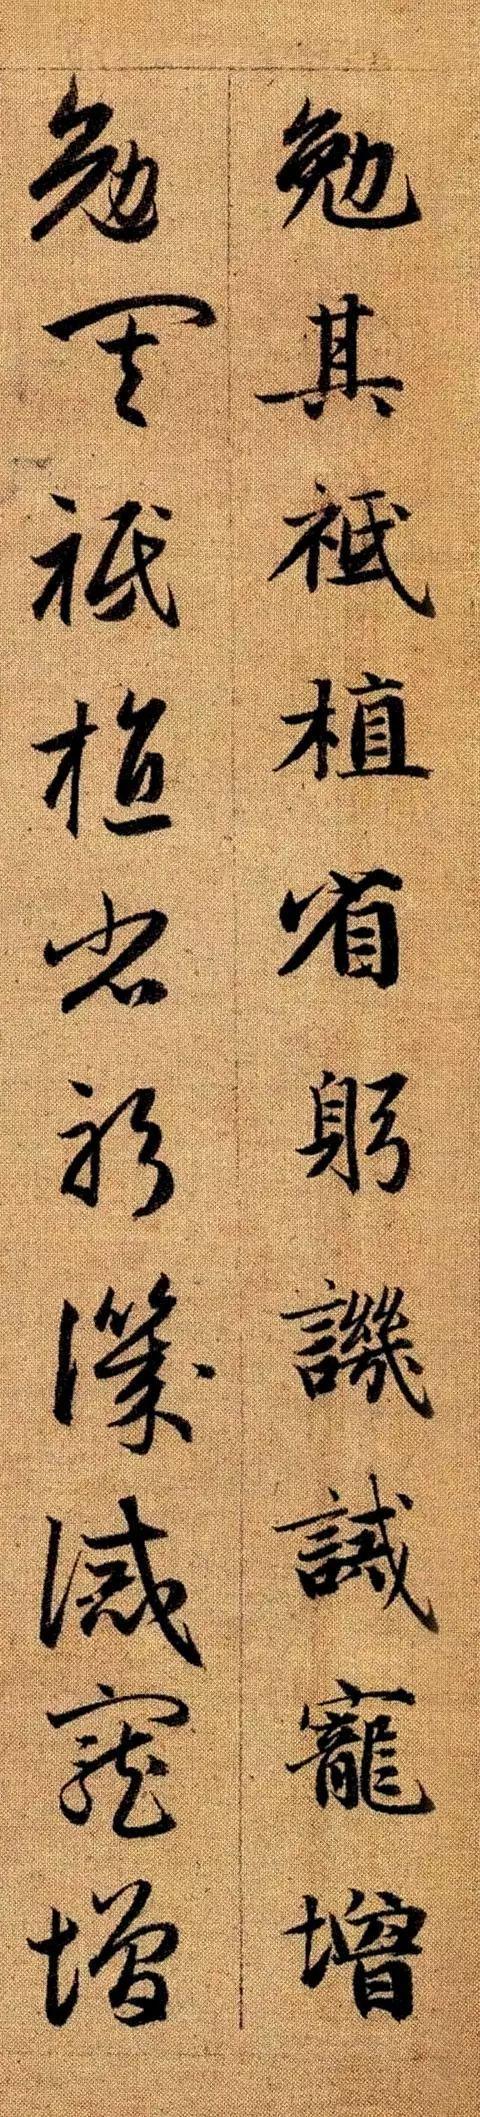 勉其祗植省躬譏誡寵增
勉其祗植省躬譏誡寵增